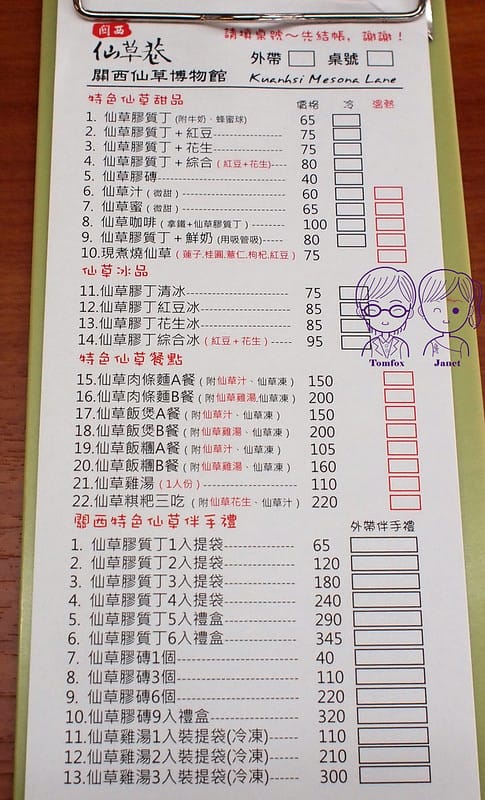 關西
仙草巷
請填桌號～先結帳，謝謝！
外帶 桌號
關西仙草博物館 Kuanhsi Mesona Lane
特色仙草甜品 價格 冷 溫熱
1. 仙草膠質丁(附牛奶、蜂蜜球) 65
2. 仙草膠質丁+紅豆 75
3. 仙草膠質丁+花生 75
4. 仙草膠質丁+綜合(紅豆+花生) 80
5. 仙草膠磚 40
6. 仙草汁(微甜) 60
7. 仙草蜜(微甜) 65
8. 仙草咖啡(拿鐵+仙草膠質丁) 100
9. 仙草膠質丁+鮮奶(用吸管吸) 80
10.現煮燒仙草(蓮子,桂圓,薏仁,枸杞,紅豆) 75
仙草冰品
11.仙草膠丁清冰 75
12.仙草膠丁紅豆冰 85
13.仙草膠丁花生冰 85
14.仙草膠丁綜合冰(紅豆+花生) 95
Tomfox Janet
特色仙草餐點
15.仙草肉條麵A餐(附仙草汁、仙草凍) 150
16.仙草肉條麵B餐(附仙草雞湯,仙草凍) 200
17.仙草飯煲A餐(附仙草汁、仙草凍) 150
18.仙草飯煲B餐(附仙草雞湯、仙草凍) 200
19.仙草飯糰A餐(附仙草汁、仙草凍) 105
20.仙草飯糰B餐(附仙草雞湯、仙草凍) 160
21.仙草雞湯(1人份) 110
22.仙草粿粑三吃(附仙草花生、仙草汁) 220
關西特色仙草伴手禮 外帶伴手禮
1. 仙草膠質丁1入提袋 65
2. 仙草膠質丁2入提袋 120
3. 仙草膠質丁3入提袋 180
4. 仙草膠質丁4入提袋 240
5. 仙草膠質丁5入禮盒 290
6. 仙草膠質丁6入禮盒 345
7. 仙草膠磚1個 40
8. 仙草膠磚3個 110
9. 仙草膠磚6個 220
10.仙草膠磚9入禮盒 320
11.仙草雞湯1入裝提袋(冷凍) 110
12.仙草雞湯2入裝提袋(冷凍) 210
13.仙草雞湯3入裝提袋(冷凍) 300